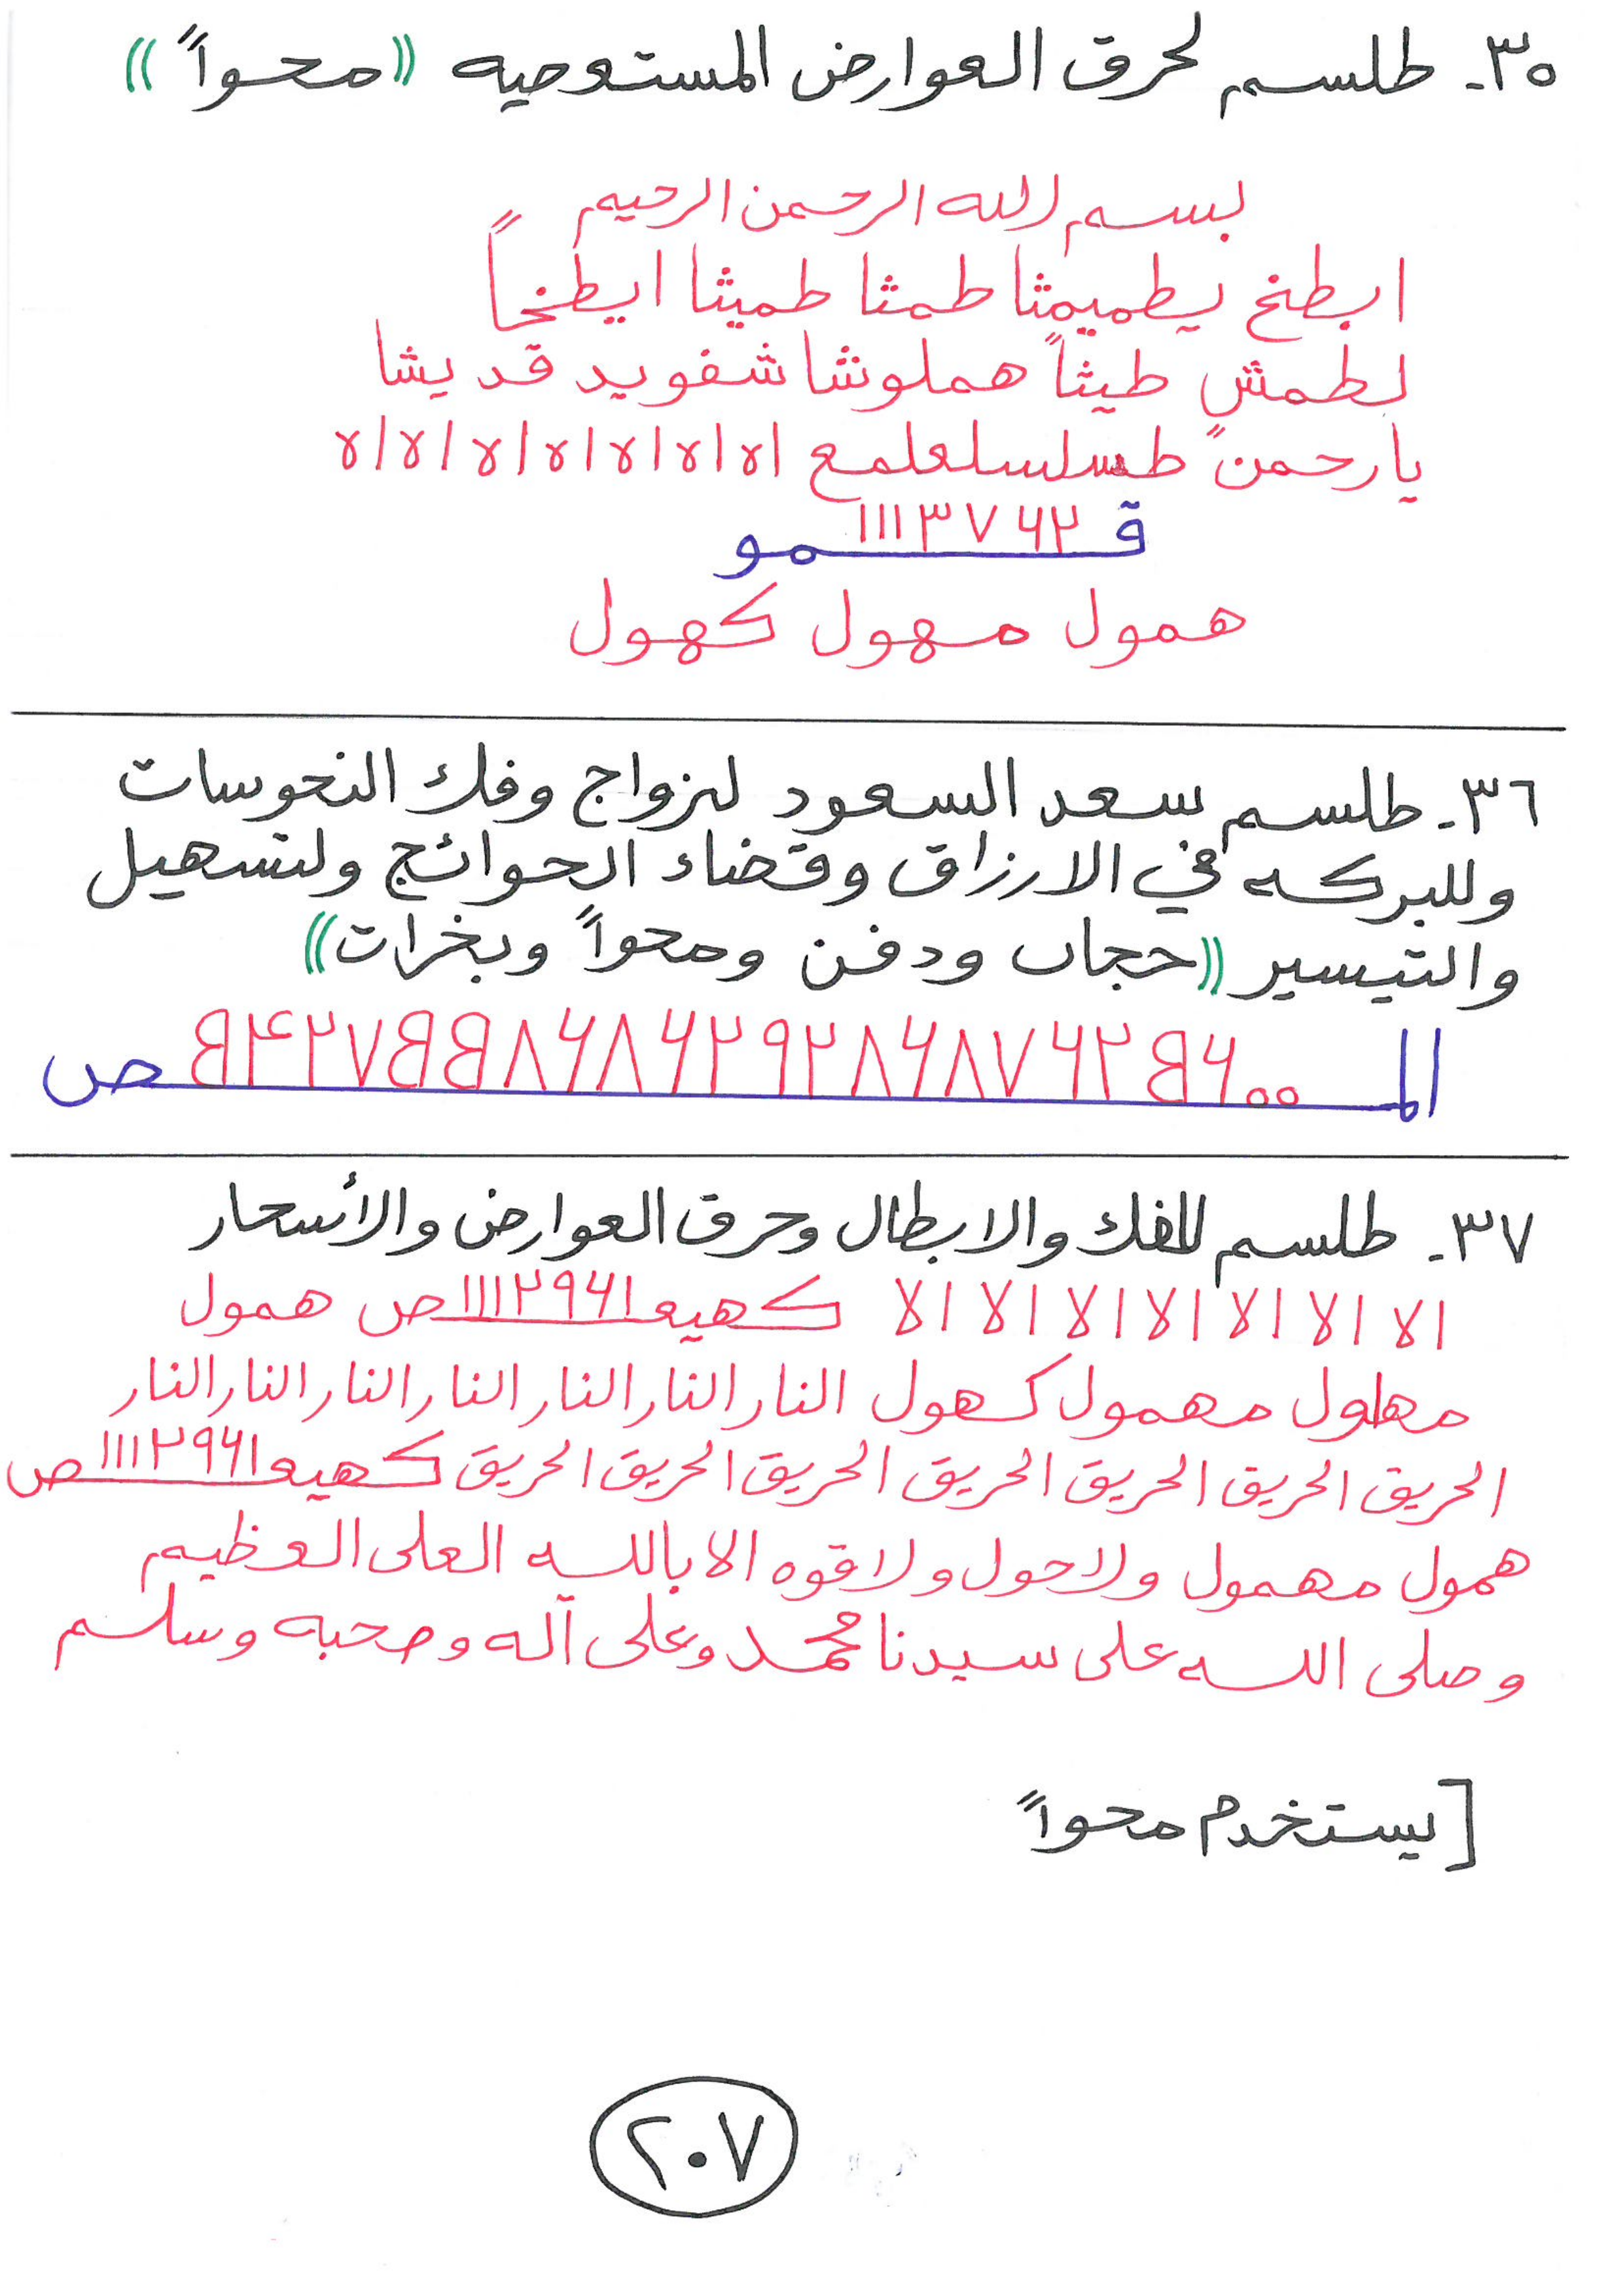 ٣٥- طلسم لحرق العوارض المستعصيه ((محواً))
بسم الله الرحمن الرحيم
ابطخ يطميمثا طمثا طميثا ايطخاً
لطمشٍ طيثاً هملوشا شفويد قديشا
يارحمن طسلسلعلمع ا٥ ا لا ا لا ا لا ا لا ا لا ا لا
ق ١١١٣٧٦٢ ـمو
همول مهول كهول
٣٦- طلسم سعد السعود لزواج وفك النحوسات
وللبركه في الارزاق وقضاء الحوائج ولتسهيل
والتيسير ((حجاب ودفن ومحواً وبخرات))
٣٧- طلسم للفك والابطال وحرق العوارض والأسحار
الا الا الا الا الا الا الا كهيعـ١١١٢٩٦١ـص همول
مهلول مهمول كهول النار النار النار النار النار النار النار
الحريق الحريق الحريق الحريق الحريق الحريق الحريق كهيعـ١١١٢٩٦١ـص
همول مهمول ولاحول ولاقوه الا بالله العلى العظيم
وصلى الله على سيدنا محمد وعلى آله وصحبه وسلم
[يستخدم محواً
٢٠٧